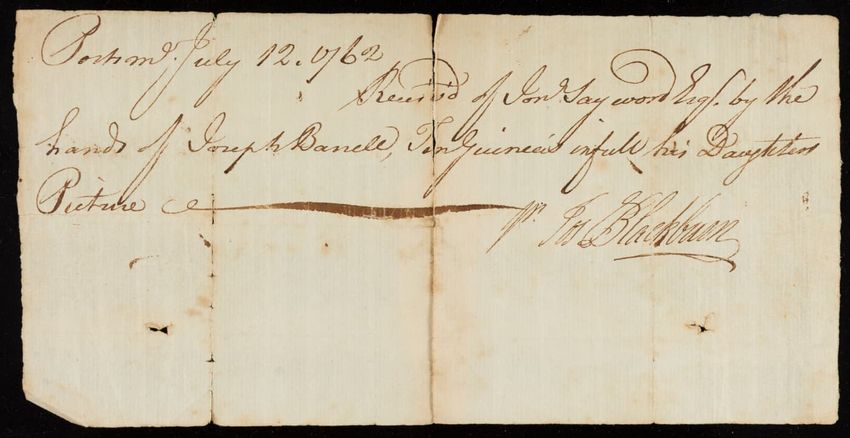 Portsmo. July 12. 1762
Receivd of Jona. Sayword Esqr. by the
hands of Joseph Barrell, Ten Guineas in full his Daughters
Picture
pr. Jos Blackburn